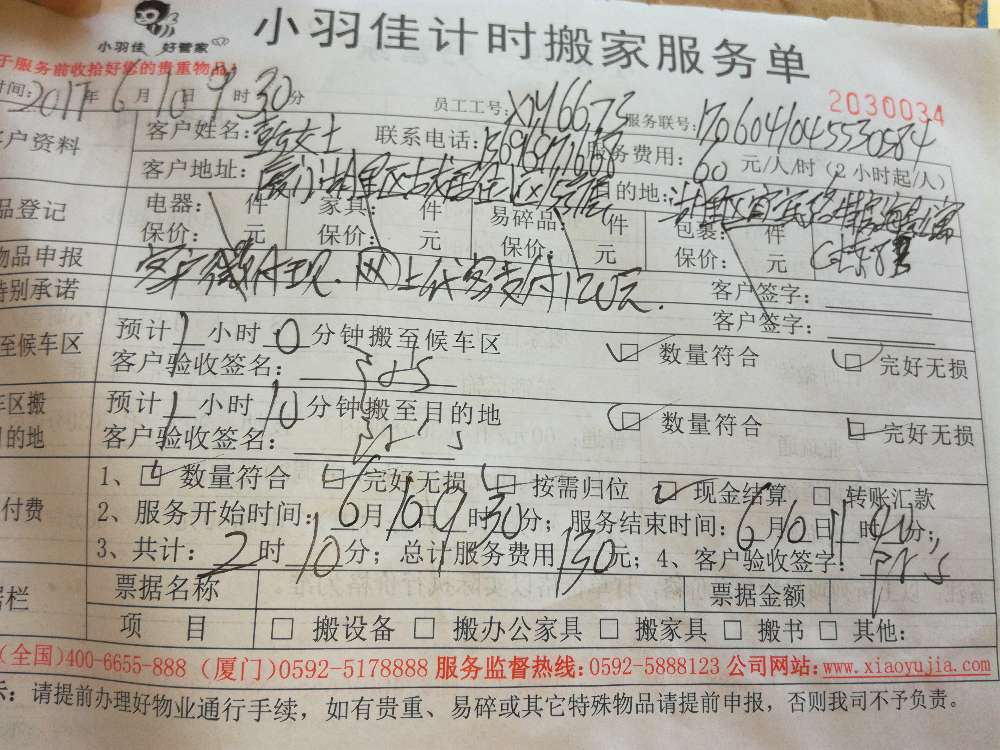 小羽佳 好管家
小羽佳计时搬家服务单
于服务前收拾好您的贵重物品!
2030034
时间: 2017年6月10日9时30分 员工工号: XY46673 服务联号: 1706041045530584
客户资料 客户姓名: 女士 联系电话: 服务费用: 60 元/人/时(2小时起/人)
客户地址: 厦门 目的地:
品登记 电器: 件 家具: 件 易碎品: 件 包裹: 件
保价: 元 保价: 元 保价: 元 保价: 元
物品申报 客户签字:
特别承诺 客户 付现.网上代客支付120元. 客户签字:
至候车区 预计1小时0分钟搬至候车区 数量符合 完好无损
客户验收签名:
车区搬 预计1小时10分钟搬至目的地 数量符合 完好无损
目的地 客户验收签名:
1、 数量符合 完好无损 按需归位 现金结算 转账汇款
付费 2、服务开始时间: 6月10日9时30分; 服务结束时间: 6月10日11时40分;
3、共计: 2时10分; 总计服务费用130元; 4、客户验收签字:
据栏 票据名称 票据金额
项 目 搬设备 搬办公家具 搬家具 搬书 其他:
(全国)400-6655-888 (厦门)0592-5178888 服务监督热线:0592-5888123 公司网站:www.xiaoyujia.com
示: 请提前办理好物业通行手续,如有贵重、易碎或其它特殊物品请提前申报,否则我司不予负责。